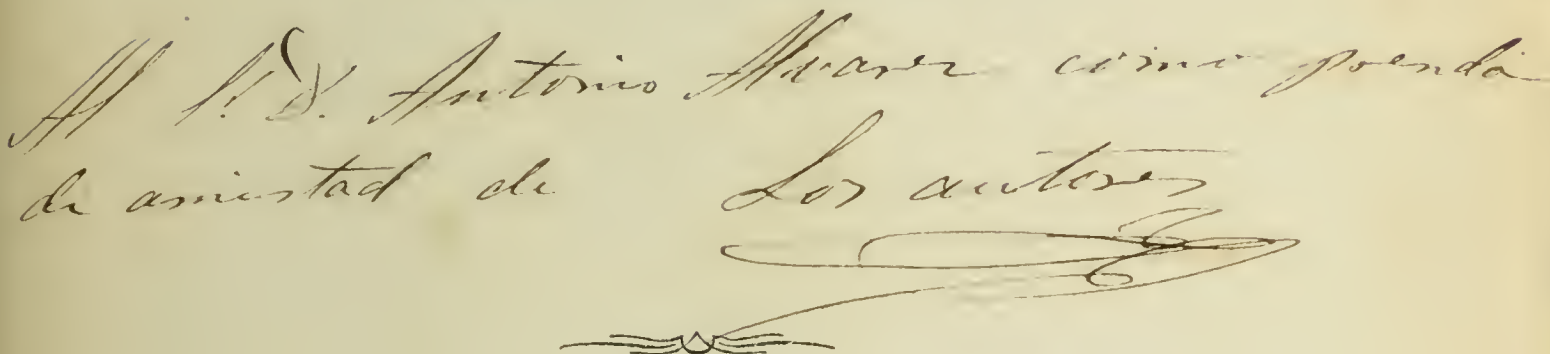 Al S. D. Antonio Alvarez como prenda
de amistad de Los autores